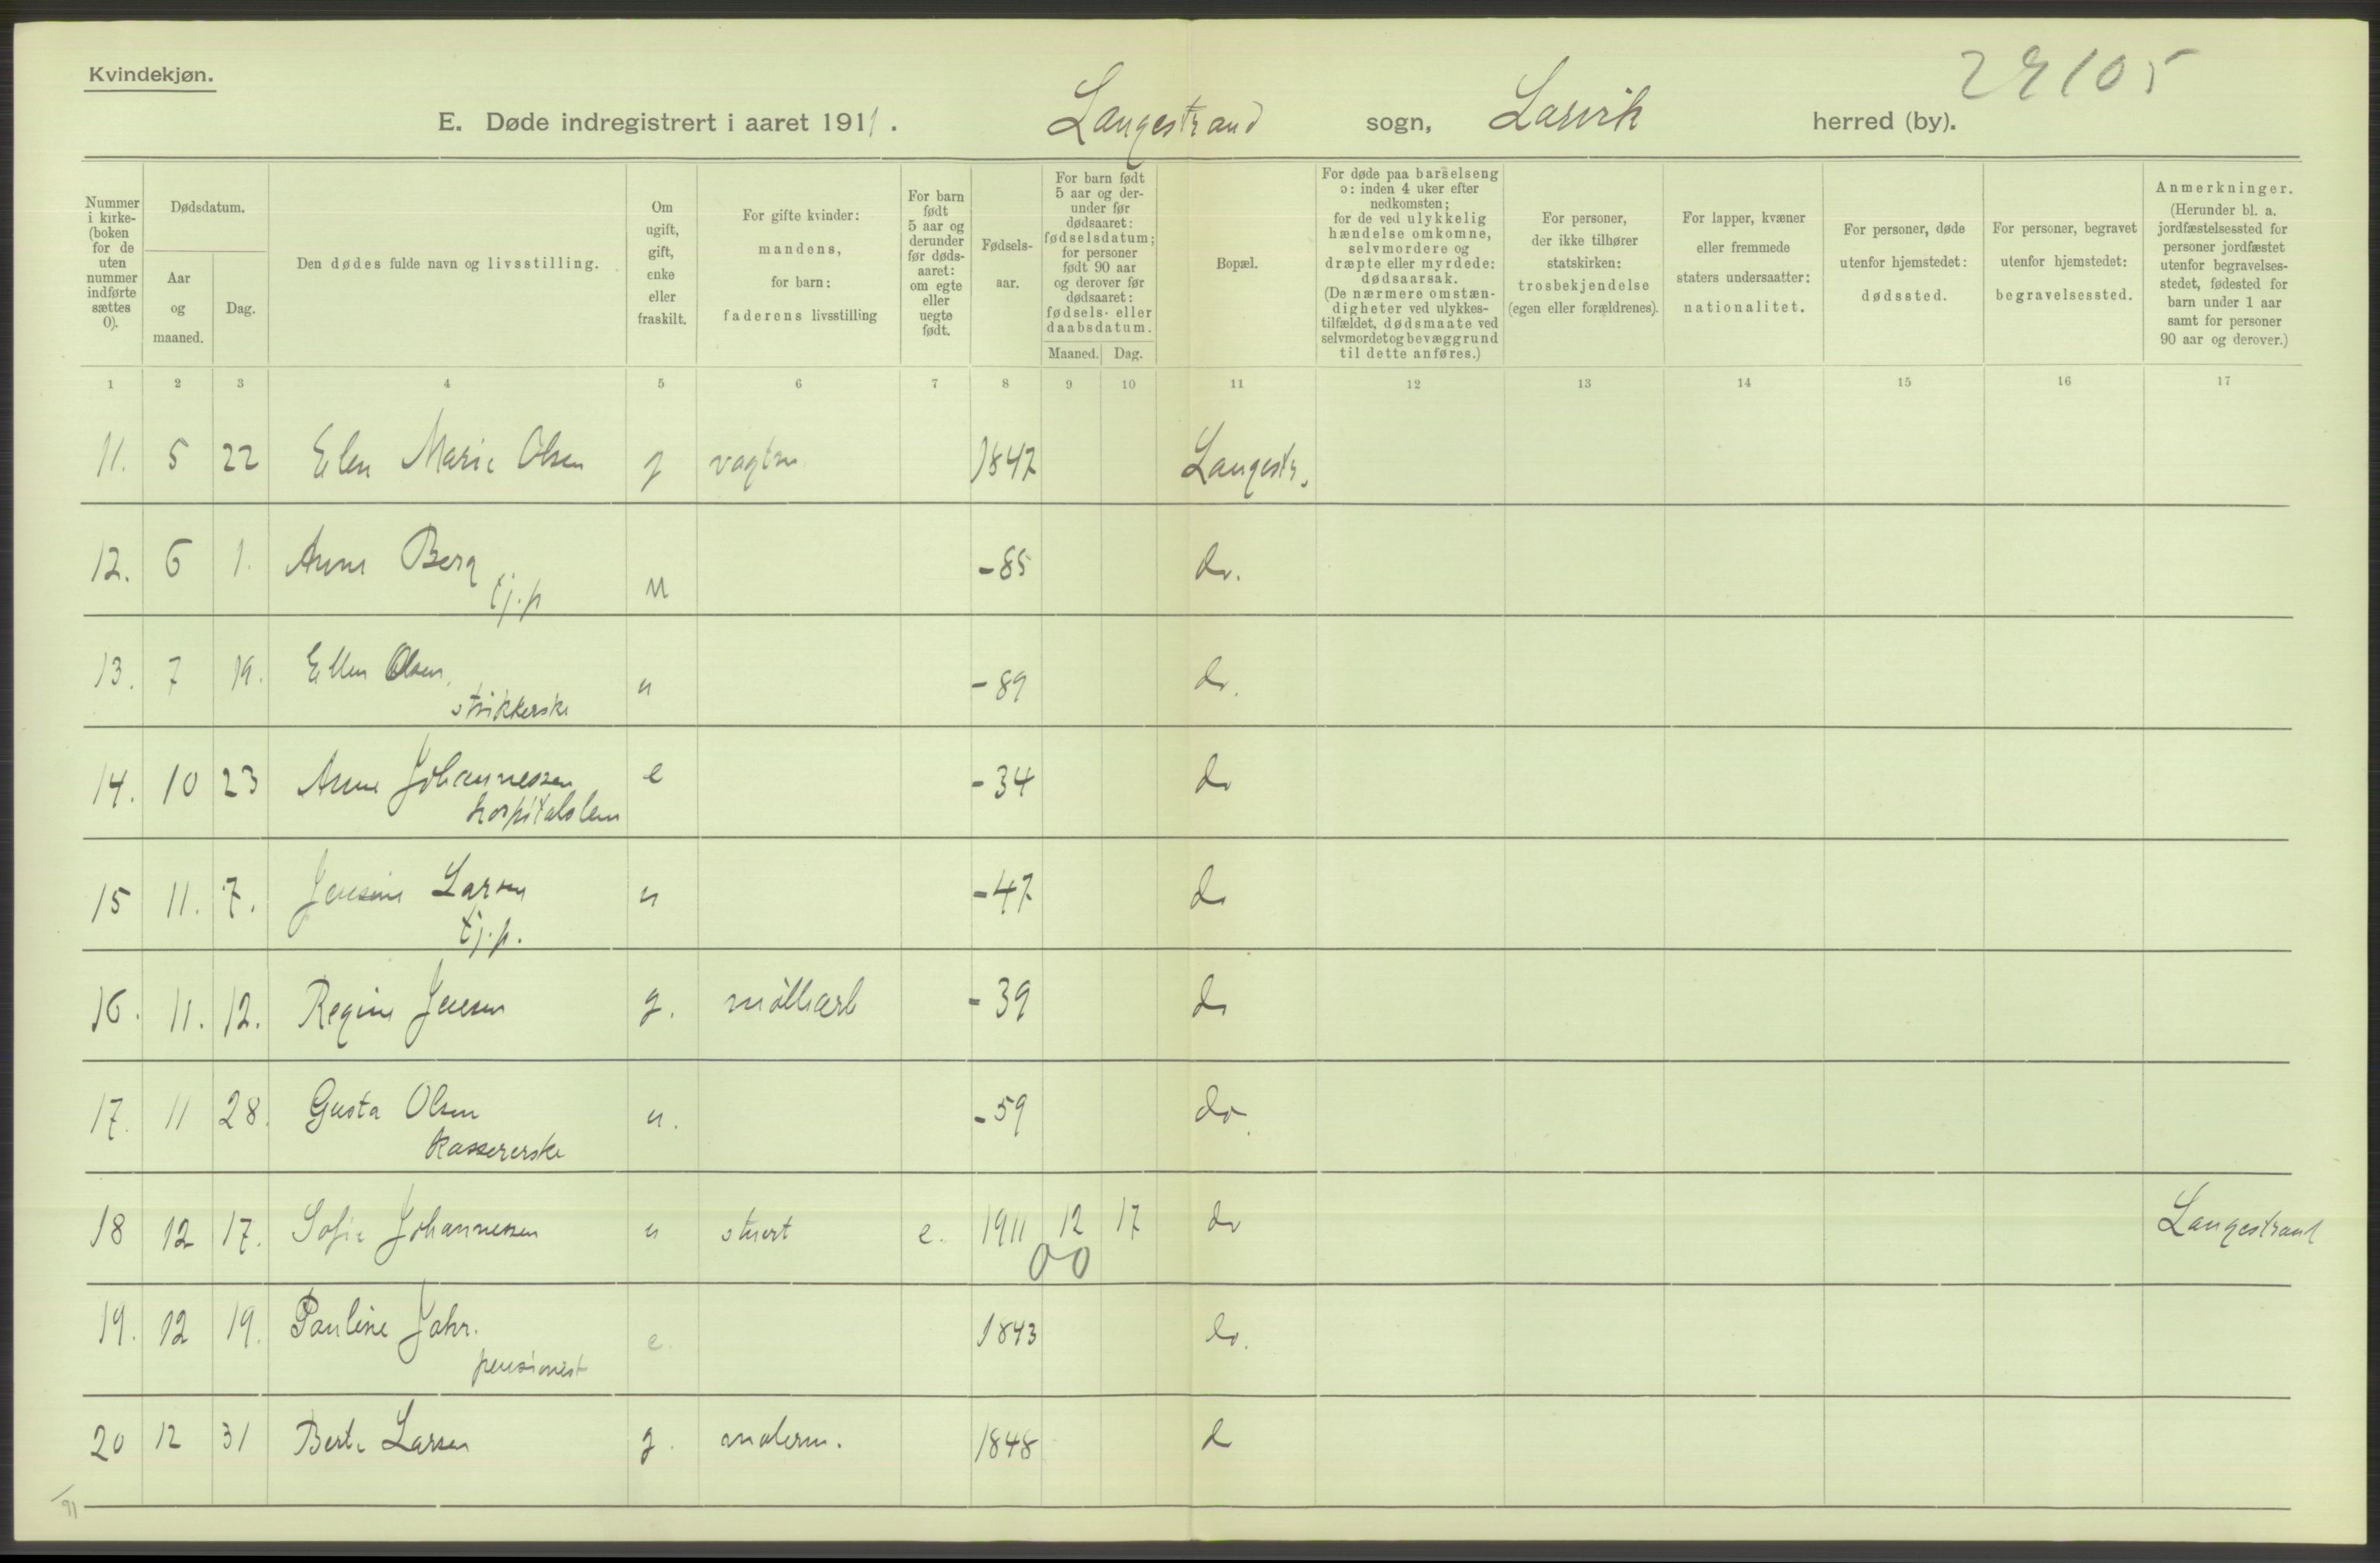 Kvindekjøn.
29105
E. Døde indregistrert i aaret 1911. Langestrand sogn, Larvik herred (by).
Nummer i kirke-(boken for de uten nummer indførte sættes 0).
Dødsdatum.
Aar og maaned.
Dag.
Den dødes fulde navn og livsstilling.
Om ugift, gift, enke eller fraskilt.
For gifte kvinder: mandens, for barn: faderens livsstilling
For barn født 5 aar og derunder før døds-aaret: om egte eller uegte født.
Fødsels-aar.
For barn født 5 aar og der-under før dødsaaret: fødselsdatum; for personer født 90 aar og derover før dødsaaret: fødsels- eller daabsdatum.
Maaned. Dag.
Bopæl.
For døde paa barselseng ɔ: inden 4 uker efter nedkomsten; for de ved ulykkelig hændelse omkomne, selvmordere og dræpte eller myrdede: dødsaarsak. (De nærmere omstæn-digheter ved ulykkes-tilfældet, dødsmaate ved selvmordet og bevæggrund til dette anføres.)
For personer, der ikke tilhører statskirken: trosbekjendelse (egen eller forældrenes).
For lapper, kvæner eller fremmede staters undersaatter: nationalitet.
For personer, døde utenfor hjemstedet: dødssted.
For personer, begravet utenfor hjemstedet: begravelsessted.
Anmerkninger. (Herunder bl. a. jordfæstelsessted for personer jordfæstet utenfor begravelses-stedet, fødested for barn under 1 aar samt for personer 90 aar og derover.)
1 2 3 4 5 6 7 8 9 10 11 12 13 14 15 16 17
11. 5 22 Elen Marie Olsen g vagtm. 1847 Langestr.
12. 6 1. Anne Berg u -85 do.
tj.p
13. 7 19. Ellen Olsen, u -89 do.
strikkerske
14. 10 23 Anne Johannessen e -34 do
hospitalslem
15 11. 7. Jensine Larsen u -47 do
tj.p.
16. 11. 12. Regine Jensen g. møllearb -39 do
17. 11 28. Gusta Olsen u. -59 do.
kassererske
18 12 17. Sofie Johannessen u stuert e. 1911 12 17 do Langestrand
00
19. 12 19. Pauline Jahr. e. 1843 do.
pensionist
20 12 31 Berte Larsen g. malerm. 1848 d